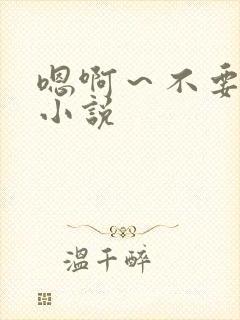 嗯啊～不要
小说
温千醉